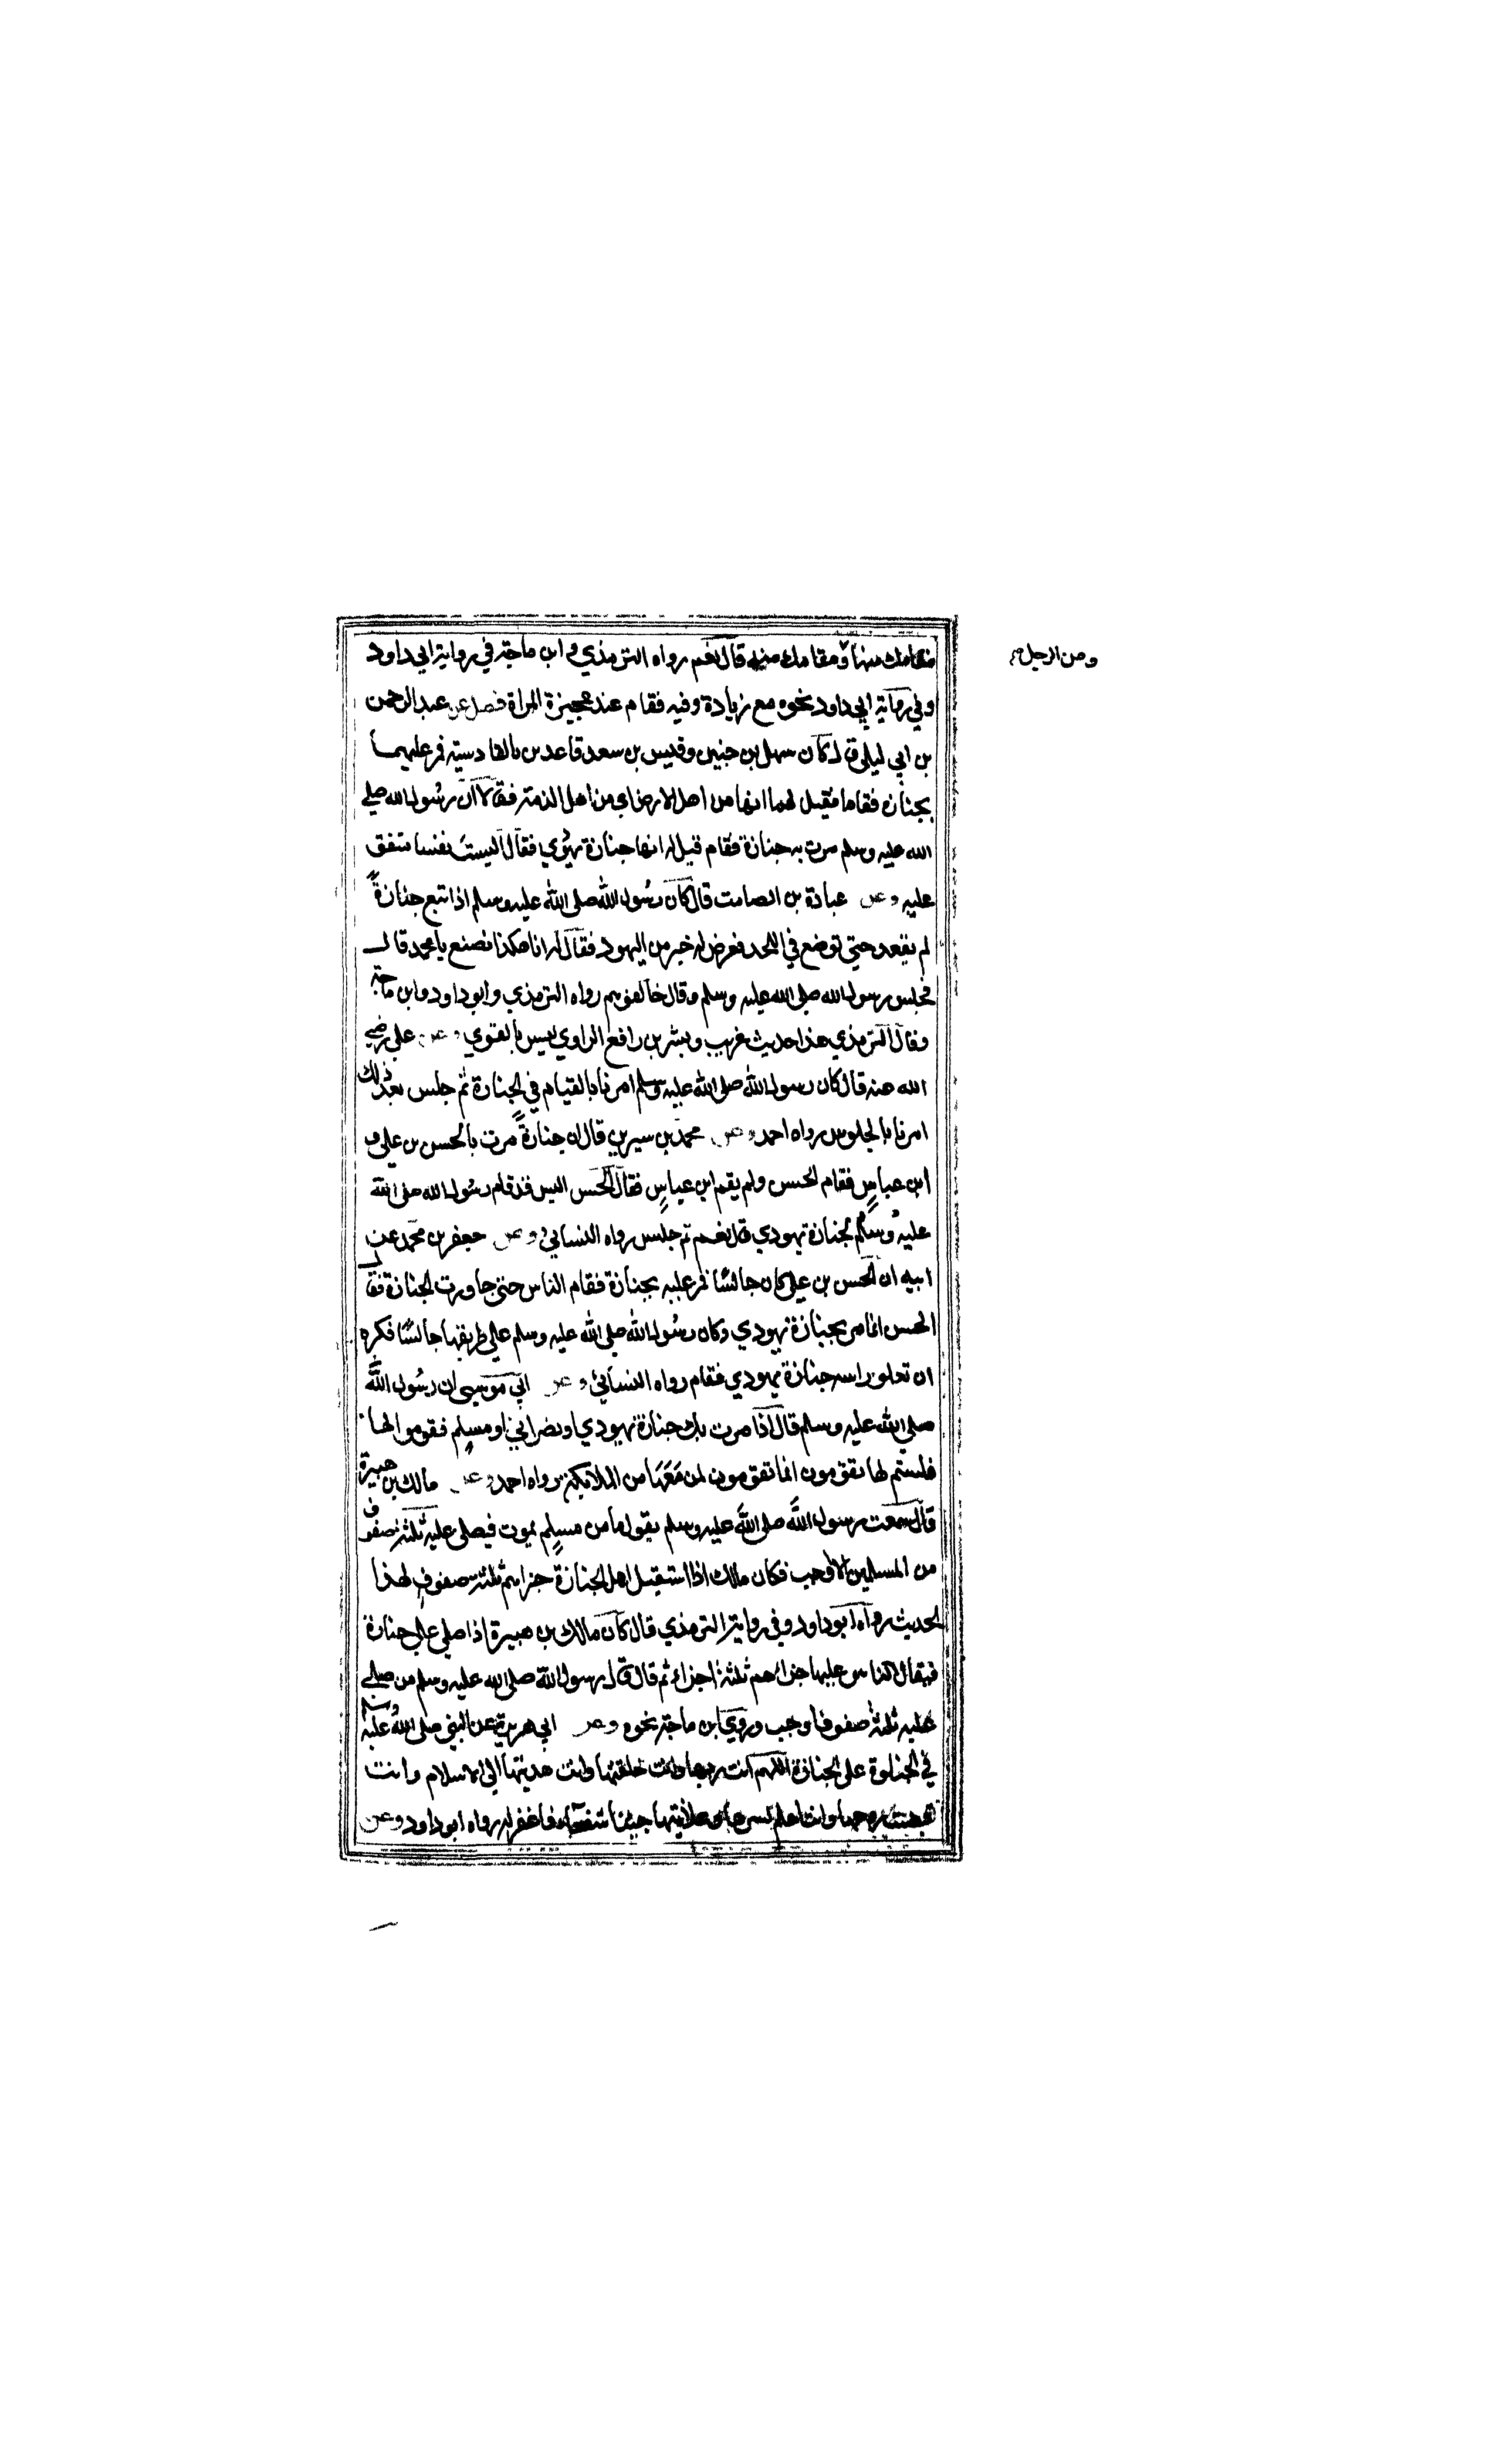 ومن الرجل
مقامك منها ومقامك منه قال نعم رواه الترمذي وابن ماجة في رواية ابي داود
وفي رواية ابي داود نحوه مع زيادة وفيه فقام عند عجيزة المراة فصل عن عبد الرحمن
بن ابي ليلى قال كان سهل بن حنيف وقيس بن سعد قاعدين بالقادسية فمر عليهما
بجنازة فقاما فقيل لهما انها من اهل الارض اي من اهل الذمة فقالا ان رسول الله صلى
الله عليه وسلم مرت به جنازة فقام فقيل له انها جنازة يهودي فقال اليست نفسا متفق
عليه وعن عبادة بن الصامت قال كان رسول الله صلى الله عليه وسلم اذا تبع جنازةً
لم يقعد حتى توضع في اللحد فعرض له حبر من اليهود فقال له انا هكذا نصنع يا محمد قال
فجلس رسول الله صلى الله عليه وسلم وقال خالفوهم رواه الترمذي وابو داود وابن ماجة
وقال الترمذي هذا حديث غريب وبشر بن رافع الراوي ليس بالقوي وعن علي رضي
الله عنه قال كان رسول الله صلى الله عليه وسلم امرنا بالقيام في الجنازة ثم جلس بعد ذلك
امرنا بالجلوس رواه احمد وعن محمد بن سيرين قال ان جنازةً مرت بالحسن بن علي و
ابن عباسٍ فقام الحسن ولم يقم ابن عباسٍ فقال الحسن اليس قد قام رسول الله صلى الله
عليه وسلم لجنازة يهودي قال نعم ثم جلس رواه النسائي وعن جعفر بن محمد عن
ابيه ان الحسن بن علي كان جالسًا فمر عليه بجنازة فقام الناس حتى جاوزت الجنازة فقال
الحسن انما مر بجنازة يهودي وكان رسول الله صلى الله عليه وسلم على طريقها جالسًا فكره
ان تعلو راسه جنازة يهودي فقام رواه النسائي وعن ابي موسى ان رسول الله
صلى الله عليه وسلم قال اذا مرت بك جنازة يهودي او نصراني او مسلمٍ فقوموا لها
فلستم لها تقومون انما تقومون لمن مَعَهَا من الملائكة رواه احمد وعن مالك بن هبيرة
قال سمعت رسول الله صلى الله عليه وسلم يقول ما من مسلمٍ يموت فيصلي عليه ثلثة صفوف
من المسلمين الا اوجب فكان مالك اذا استقبل اهل الجنازة جزاهم ثلثة صفوفٍ لهذا
الحديث رواه ابو داود وفي رواية الترمذي قال كان مالك بن هبيرة اذا صلى على جنازة
فتقال الناس عليها جزاهم ثلثة اجزاء ثم قال قال رسول الله صلى الله عليه وسلم من صلى
عليه ثلثة صفوف اوجب وروى ابن ماجة نحوه وعن ابي هريرة عن النبي صلى الله عليه وسلم
في الصلوة على الجنازة اللهم انت ربها وانت خلقتها وانت هديتها الى الاسلام وانت
قبضت روحها وانت اعلم بسرها وعلانيتها جئنا شفعاء فاغفر له رواه ابو داود وعن